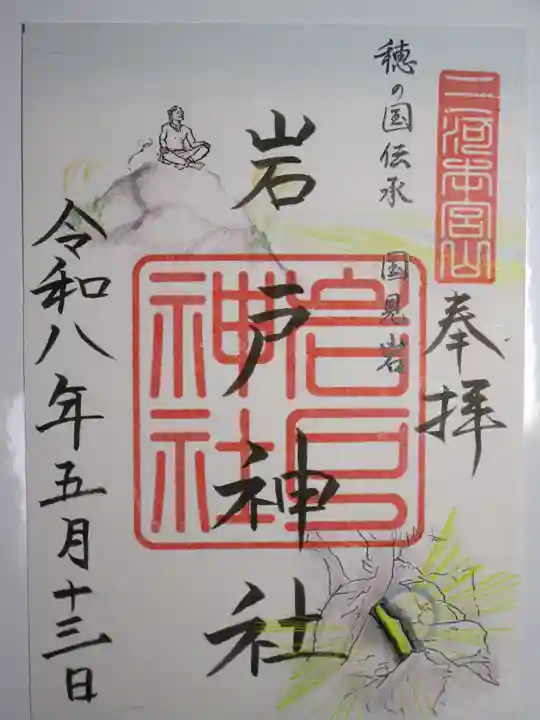 三河本宮山
奉拝
穂の国伝承 国見岩
岩戸神社
岩戸神社
令和八年五月十三日